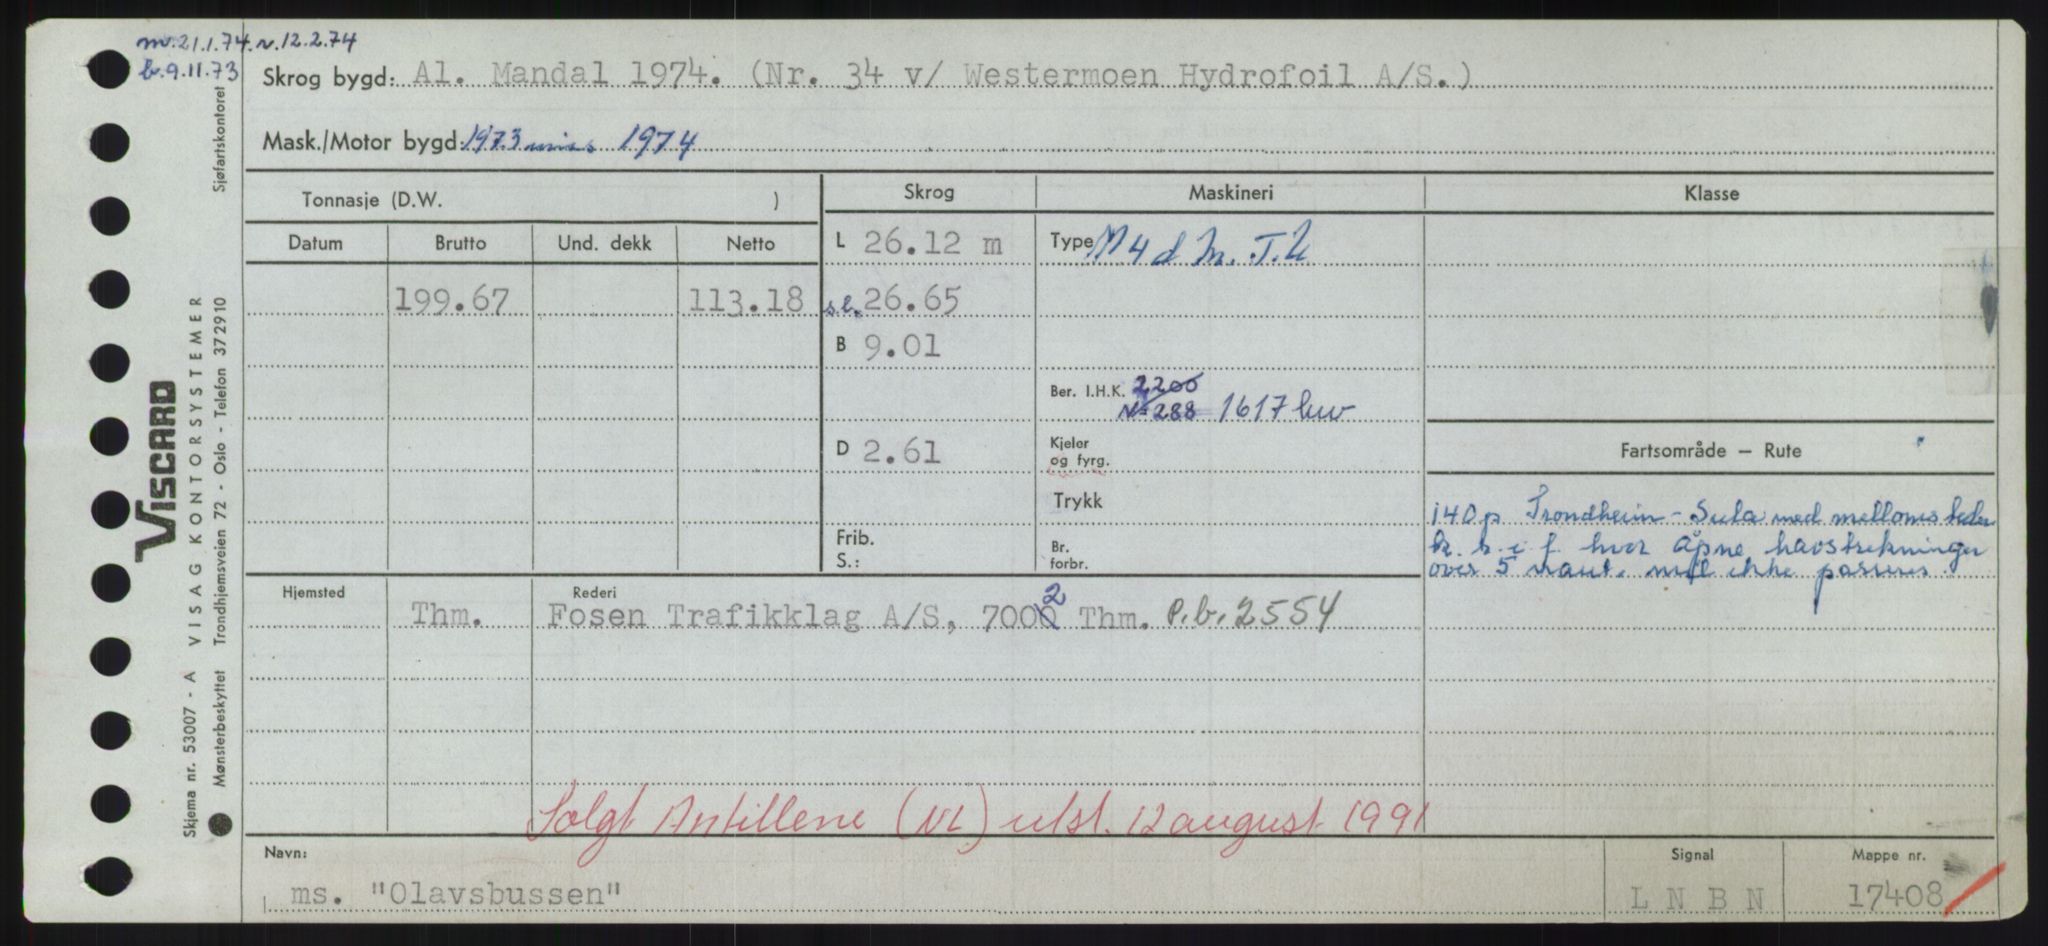 m. 21.1.74. r. 12.2.74
b. 9.11.73
Skrog bygd: Al. Mandal 1974. (Nr. 34 v/ Westermoen Hydrofoil A/S.)
Mask./Motor bygd: 1973 1974
Tonnasje (D.W. )
Skrog
Maskineri
Klasse
Datum
Brutto
Und. dekk
Netto
L 26.12 m
Type
199.67
113.18
s.l. 26.65
B 9.01
Ber. I.H.K. 2200
N=288 1617 kw
D 2.61
Kjeler
og fyrg.
Fartsområde — Rute
Trykk
140 p Trondheim - Sula med mellomsteder
hvor åpne havstrekninger
over 5 naut. mil ikke passeres
Frib.
S.:
Br.
forbr.
Hjemsted
Rederi
Thm.
Fosen Trafikklag A/S, 7000 2 Thm. P.b. 2554
Solgt Antillene (NL) utst. 12 august 1991
Navn:
ms. "Olavsbussen"
Signal
L N B N
Mappe nr.
17408
VISCARD
VISAG KONTORSYSTEMER
Skjema nr. 53007 - A
Mønsterbeskyttet
Trondhjemsveien 72 - Oslo - Telefon 372910
Sjøfartskontoret